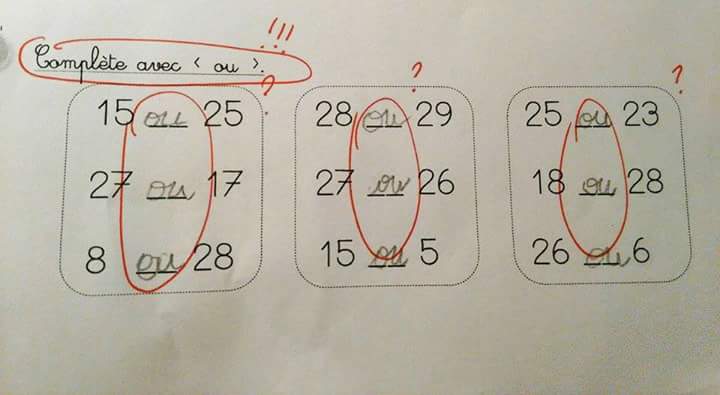 !!!
Complète avec < ou >.
? ? ?
15 ou 25 28 ou 29 25 ou 23
27 ou 17 27 ou 26 18 ou 28
8 ou 28 15 ou 5 26 ou 6